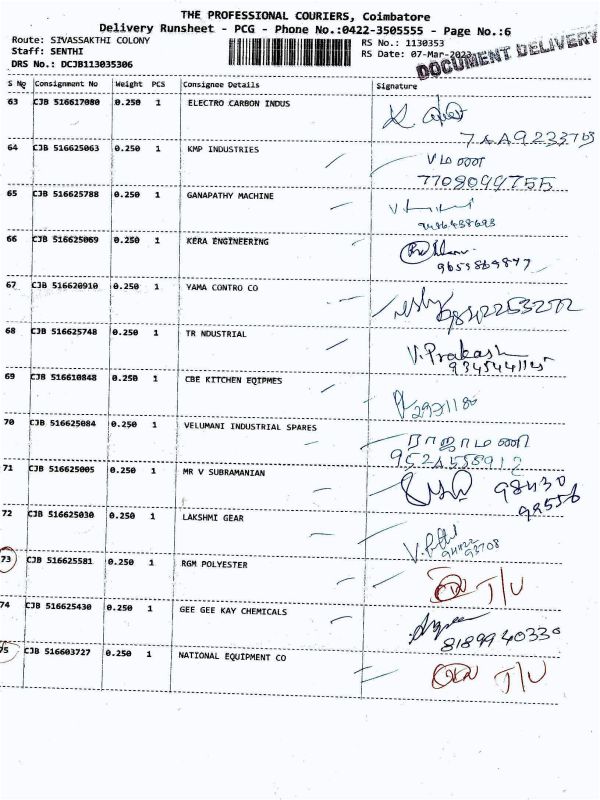 THE PROFESSIONAL COURIERS, Coimbatore
Delivery Runsheet - PCG - Phone No.:0422-3505555 - Page No.:6
Route: SIVASSAKTHI COLONY
RS No.: 1130353
Staff: SENTHI
RS Date: 07-Mar-2023
DRS No.: DCJB113035306
DOCUMENT DELIVERY
S No Consignment No Weight PCS Consignee Details Signature
63 CJB 516617080 0.250 1 ELECTRO CARBON INDUS
64 CJB 516625063 0.250 1 KMP INDUSTRIES
7708099755
65 CJB 516625788 0.250 1 GANAPATHY MACHINE
9486438693
66 CJB 516625069 0.250 1 KERA ENGINEERING
9659869877
67 CJB 516620910 0.250 1 YAMA CONTRO CO
9842253272
68 CJB 516625748 0.250 1 TR NDUSTRIAL
V. Prakash
9345441145
69 CJB 516610848 0.250 1 CBE KITCHEN EQIPMES
2931180
70 CJB 516625084 0.250 1 VELUMANI INDUSTRIAL SPARES
ராஜாமணி
9524558912
71 CJB 516625005 0.250 1 MR V SUBRAMANIAN
98430
99556
72 CJB 516625030 0.250 1 LAKSHMI GEAR
73 CJB 516625581 0.250 1 RGM POLYESTER
J/U
74 CJB 516625430 0.250 1 GEE GEE KAY CHEMICALS
8189940330
75 CJB 516603727 0.250 1 NATIONAL EQUIPMENT CO
J/U